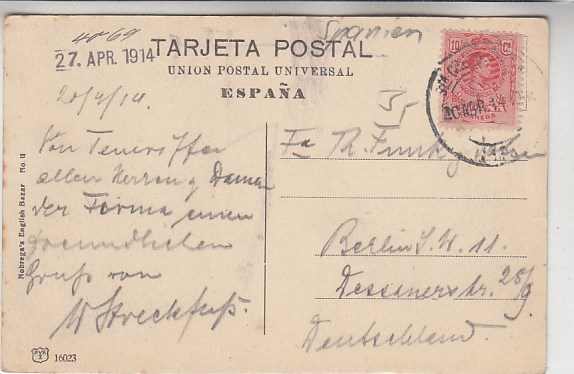 Spanien
4069
27. APR. 1914
TARJETA POSTAL
UNION POSTAL UNIVERSAL
ESPAÑA
20/4/14
Von Teneriffa
allen Herren & Damen
der Firma einen
freundlichen
Gruß von
W Streckfuß.
Fa Th. Funk
Berlin S.W. 11.
Dessauerstr. 28/9.
Deutschland.
10 Cs
20 ABR. 14
Nobrega's English Bazar No. 11
16023